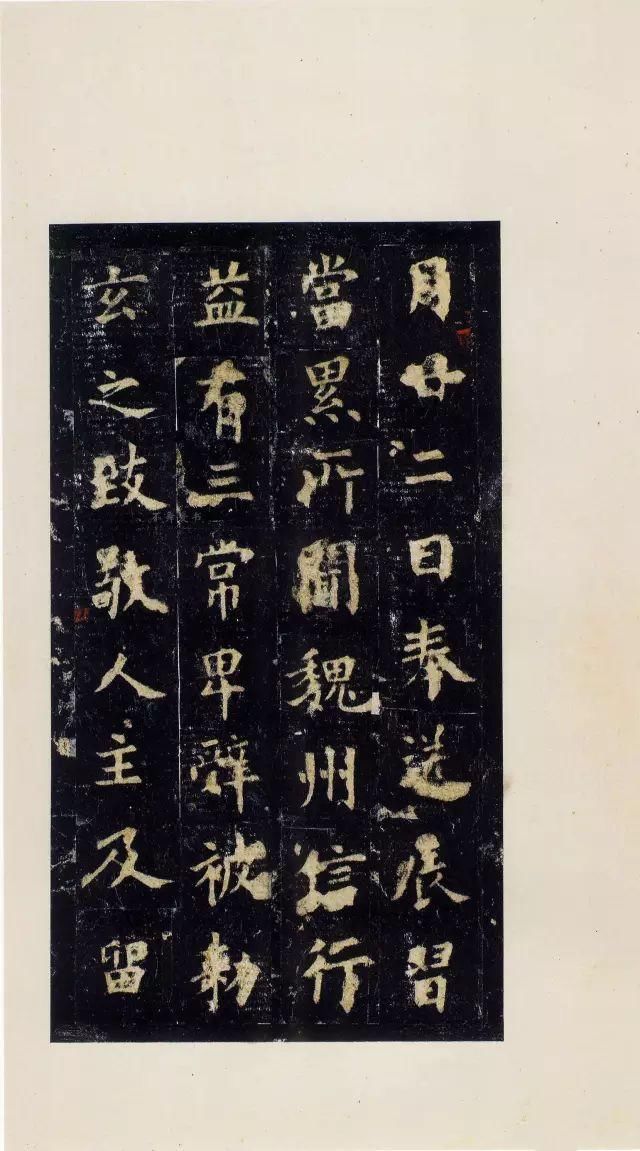 月廿二日奉送展習
當累所聞魏州信行
益有三常卑辭被勑
玄之致敬人主及留